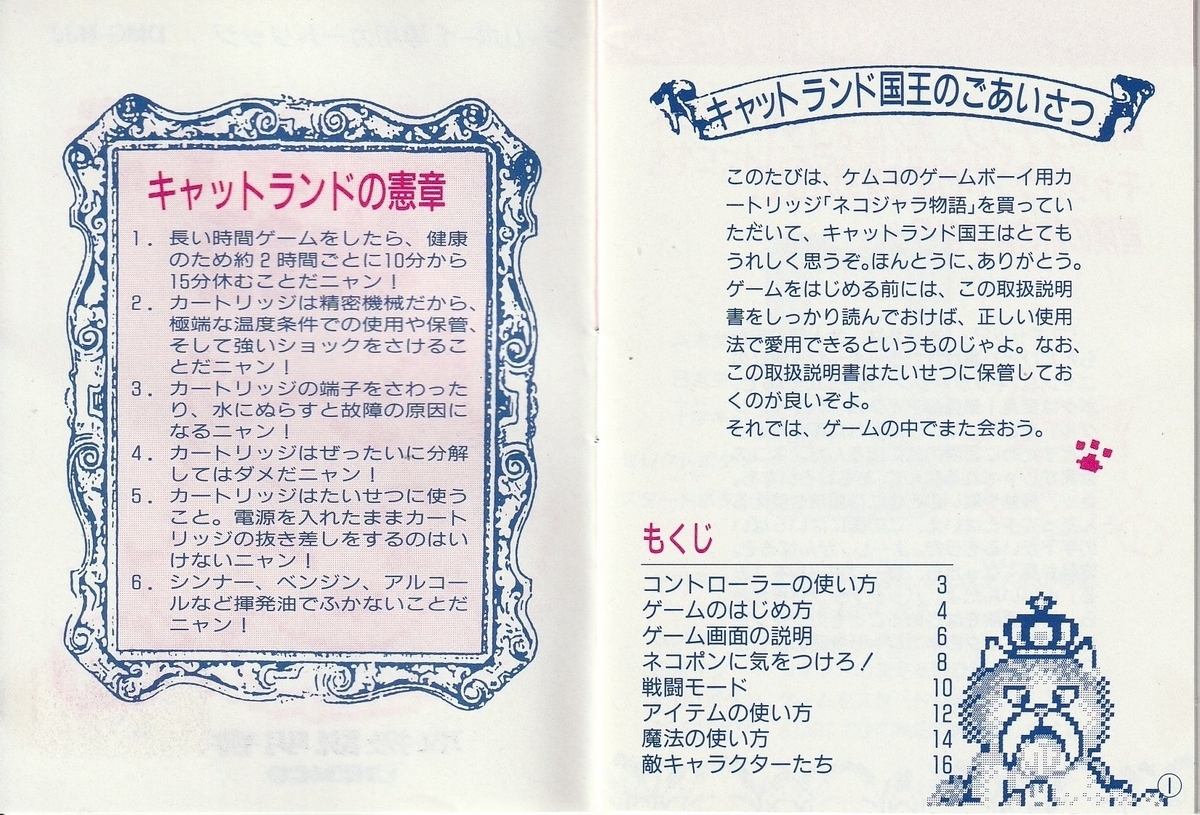 キャットランドの憲章
1. 長い時間ゲームをしたら、健康
のため約2時間ごとに10分から
15分休むことだニャン！
2. カートリッジは精密機械だから、
極端な温度条件での使用や保管、
そして強いショックをさけるこ
とだニャン！
3. カートリッジの端子をさわった
り、水にぬらすと故障の原因に
なるニャン！
4. カートリッジはぜったいに分解
してはダメだニャン！
5. カートリッジはたいせつに使う
こと。電源を入れたままカート
リッジの抜き差しをするのはい
けないニャン！
6. シンナー、ベンジン、アルコー
ルなど揮発油でふかないことだ
ニャン！
キャットランド国王のごあいさつ
このたびは、ケムコのゲームボーイ用カ
ートリッジ「ネコジャラ物語」を買ってい
ただいて、キャットランド国王はとても
うれしく思うぞ。ほんとうに、ありがとう。
ゲームをはじめる前には、この取扱説明
書をしっかり読んでおけば、正しい使用
法で愛用できるというものじゃよ。なお、
この取扱説明書はたいせつに保管してお
くのが良いぞよ。
それでは、ゲームの中でまた会おう。
もくじ
コントローラーの使い方 3
ゲームのはじめ方 4
ゲーム画面の説明 6
ネコポンに気をつけろ！ 8
戦闘モード 10
アイテムの使い方 12
魔法の使い方 14
敵キャラクターたち 16
①